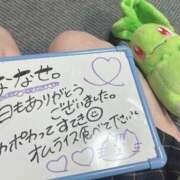 ななせ。
日もありがとう
ございました。
カポカってすてき
オムライス食べて下さい